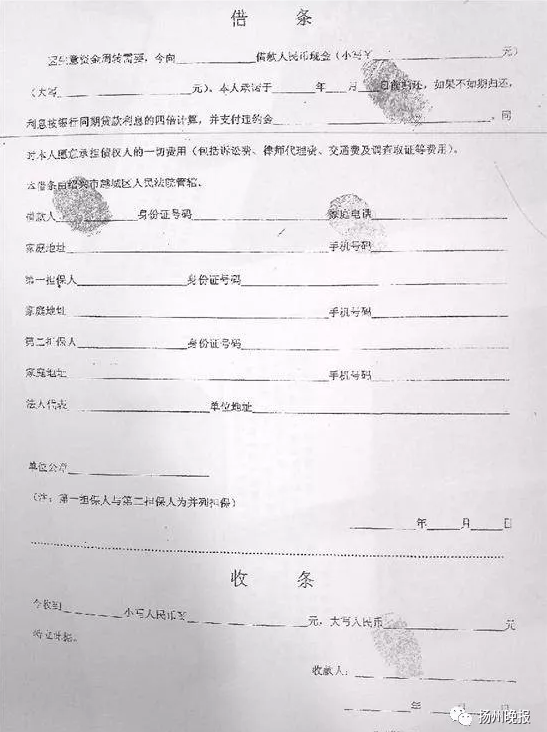 借 条
因生意资金周转需要，今向____________借款人民币现金（小写￥____________元）
（大写____________元），本人承诺于____年__月__日前归还，如果不如期归还，
利息按银行同期贷款利息的四倍计算，并支付违约金____________。同
时本人愿意承担债权人的一切费用（包括诉讼费、律师代理费、交通费及调查取证等费用）。
本借条由绍兴市越城区人民法院管辖。
借款人____________身份证号码____________家庭电话____________
家庭地址____________手机号码____________
第一担保人____________身份证号码____________
家庭地址____________手机号码____________
第二担保人____________身份证号码____________
家庭地址____________手机号码____________
法人代表____________单位地址____________
单位公章____________
（注：第一担保人与第二担保人为并列担保）
________年____月____日
收 条
今收到________小写人民币￥____________元，大写人民币____________元
特立此据。
收款人：____________
________年____月
扬州晚报